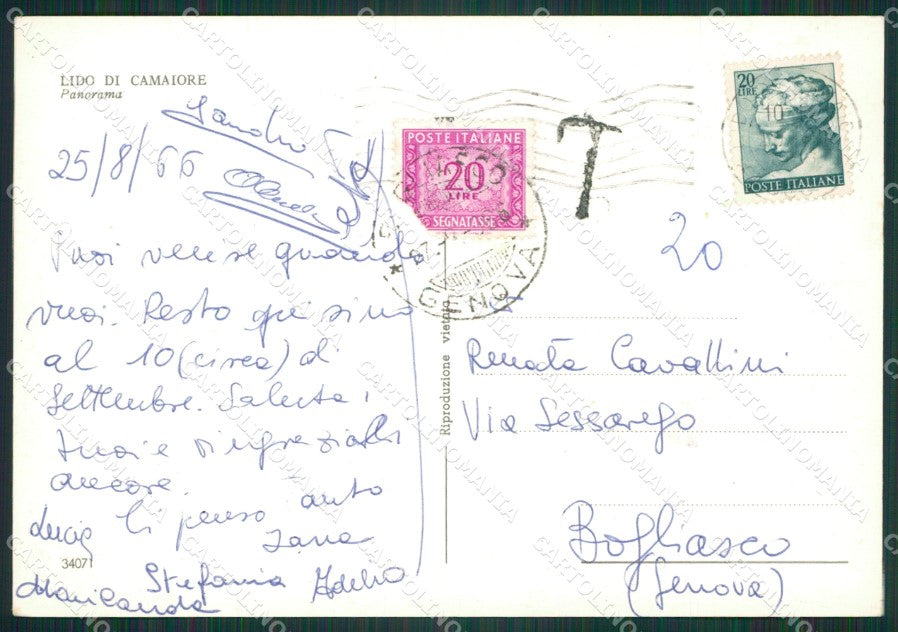 LIDO DI CAMAIORE
Panorama
25/8/66
Sandro
Puoi venire quando
vuoi. Resto qui sino
al 10 (circa) di
Settembre. Saluta i
tuoi e ringraziali
ancora.
Ti penso tanto
Lucia
Stefania Adelio
Marilanda
34071
Riproduzione vietata
POSTE ITALIANE
20
LIRE
SEGNATASSE
GENOVA
T
20
LIRE
10
POSTE ITALIANE
20
Renata Cavallini
Via Sessarego
Bogliasco
(Genova)
CARTOLINOMANIA